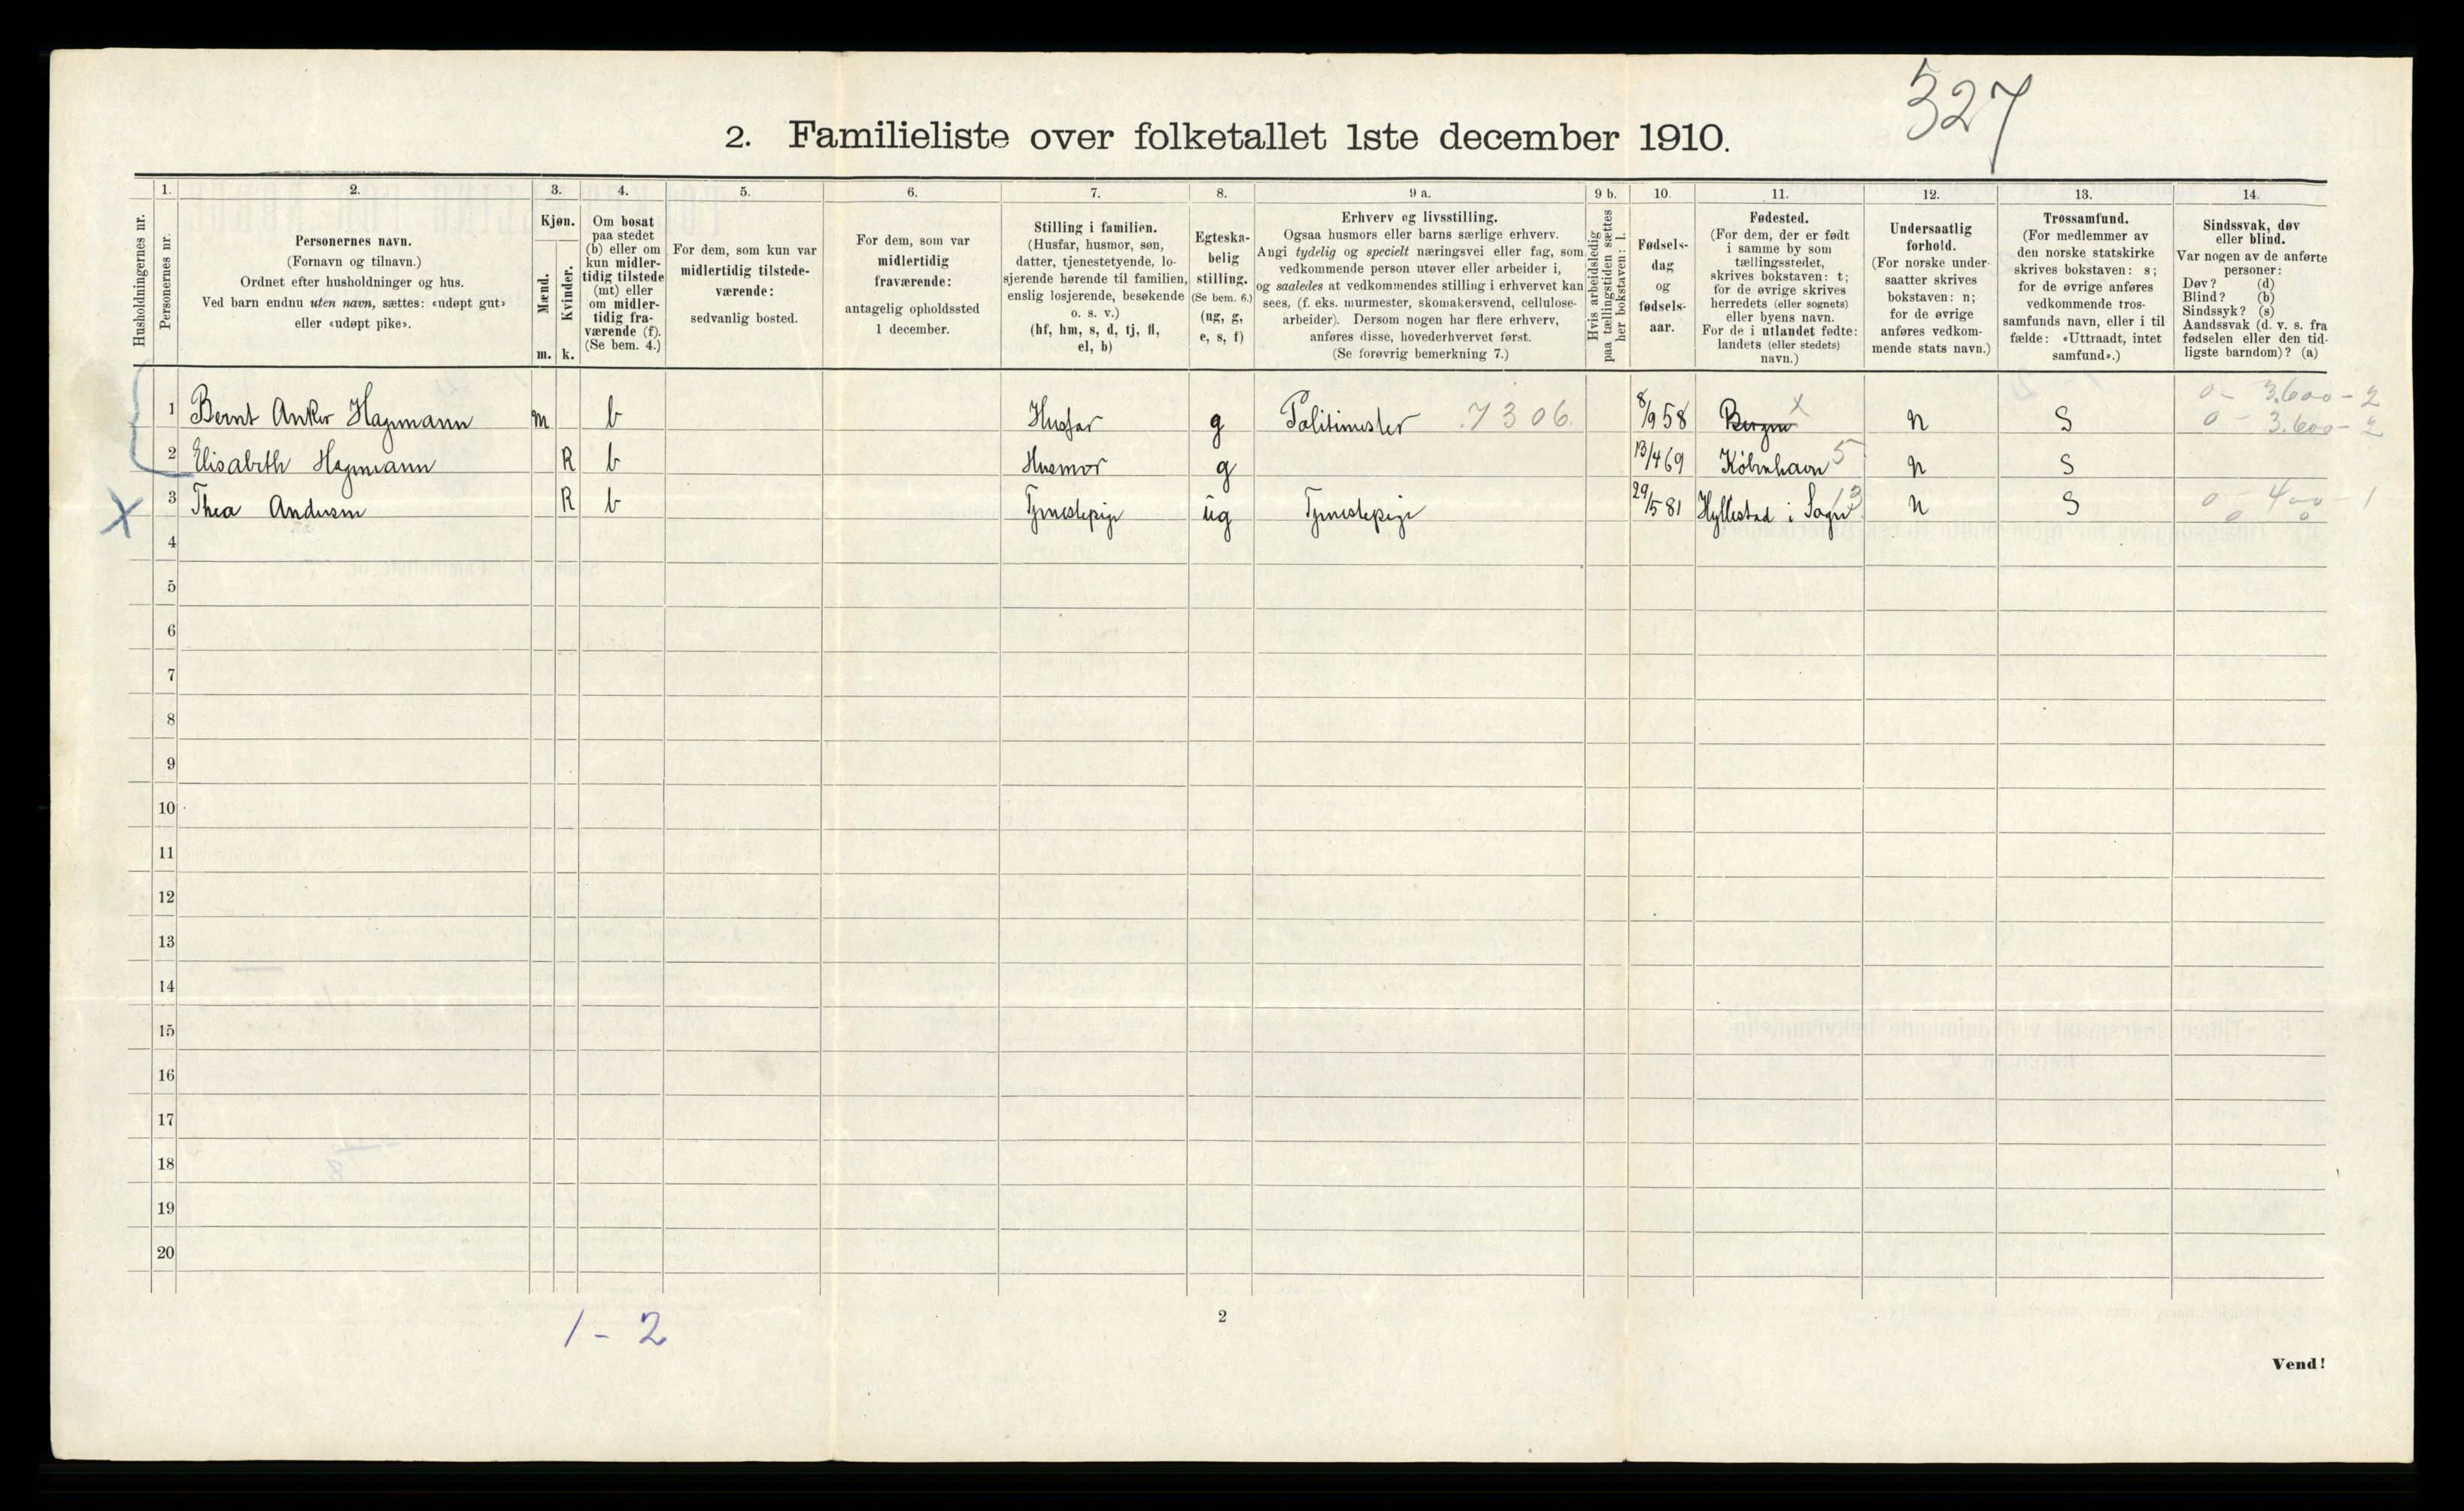 327
2. Familieliste over folketallet 1ste december 1910.
Husholdningernes nr.
1.
Personernes nr.
2.
Personernes navn.
(Fornavn og tilnavn.)
Ordnet efter husholdninger og hus.
Ved barn endnu uten navn, sættes: «udøpt gut»
eller «udøpt pike».
3.
Kjøn.
Mænd.
Kvinder.
m. k.
4.
Om bosat
paa stedet
(b) eller om
kun midler-
tidig tilstede
(mt) eller
om midler-
tidig fra-
værende (f).
(Se bem. 4.)
5.
For dem, som kun var
midlertidig tilstede-
værende:
sedvanlig bosted.
6.
For dem, som var
midlertidig
fraværende:
antagelig opholdssted
1 december.
7.
Stilling i familien.
(Husfar, husmor, søn,
datter, tjenestetyende, lo-
sjerende hørende til familien,
enslig losjerende, besøkende
o. s. v.)
(hf, hm, s, d, tj, fl,
el, b)
8.
Egteska-
belig
stilling.
(Se bem. 6.)
(ug, g,
e, s, f)
9 a.
Erhverv og livsstilling.
Ogsaa husmors eller barns særlige erhverv.
Angi tydelig og specielt næringsvei eller fag, som
vedkommende person utøver eller arbeider i,
og saaledes at vedkommendes stilling i erhvervet kan
sees, (f. eks. murmester, skomakersvend, cellulose-
arbeider). Dersom nogen har flere erhverv,
anføres disse, hovederhvervet først.
(Se forøvrig bemerkning 7.)
9 b.
Hvis arbeidsledig
paa tællingstiden sættes
her bokstaven: l.
10.
Fødsels-
dag
og
fødsels-
aar.
11.
Fødested.
(For dem, der er født
i samme by som
tællingsstedet,
skrives bokstaven: t;
for de øvrige skrives
herredets (eller sognets)
eller byens navn.
For de i utlandet fødte:
landets (eller stedets)
navn.)
12.
Undersaatlig
forhold.
(For norske under-
saatter skrives
bokstaven: n;
for de øvrige
anføres vedkom-
mende stats navn.)
13.
Trossamfund.
(For medlemmer av
den norske statskirke
skrives bokstaven: s;
for de øvrige anføres
vedkommende tros-
samfunds navn, eller i til
fælde: «Uttraadt, intet
samfund».)
14.
Sindssvak, døv
eller blind.
Var nogen av de anførte
personer:
Døv? (d)
Blind? (b)
Sindssyk? (s)
Aandssvak (d. v. s. fra
fødselen eller den tid-
ligste barndom)? (a)
0 - 3.600 - 2
1 Bernt Anker Hagemann m b Husfar g Politimester 7306. 8/9 58 Bergen X n S 0 - 3.600 - 2
2 Elisabeth Hagemann k b Husmor g 13/4 69 København 5 n S
X 3 Thea Andersen k b Tjenestepige ug Tjenestepige 29/5 81 Hyllestad i Sogn 13 n S 0 - 400 - 1
0 0
4
5
6
7
8
9
10
11
12
13
14
15
16
17
18
19
20
1 - 2
2
Vend!